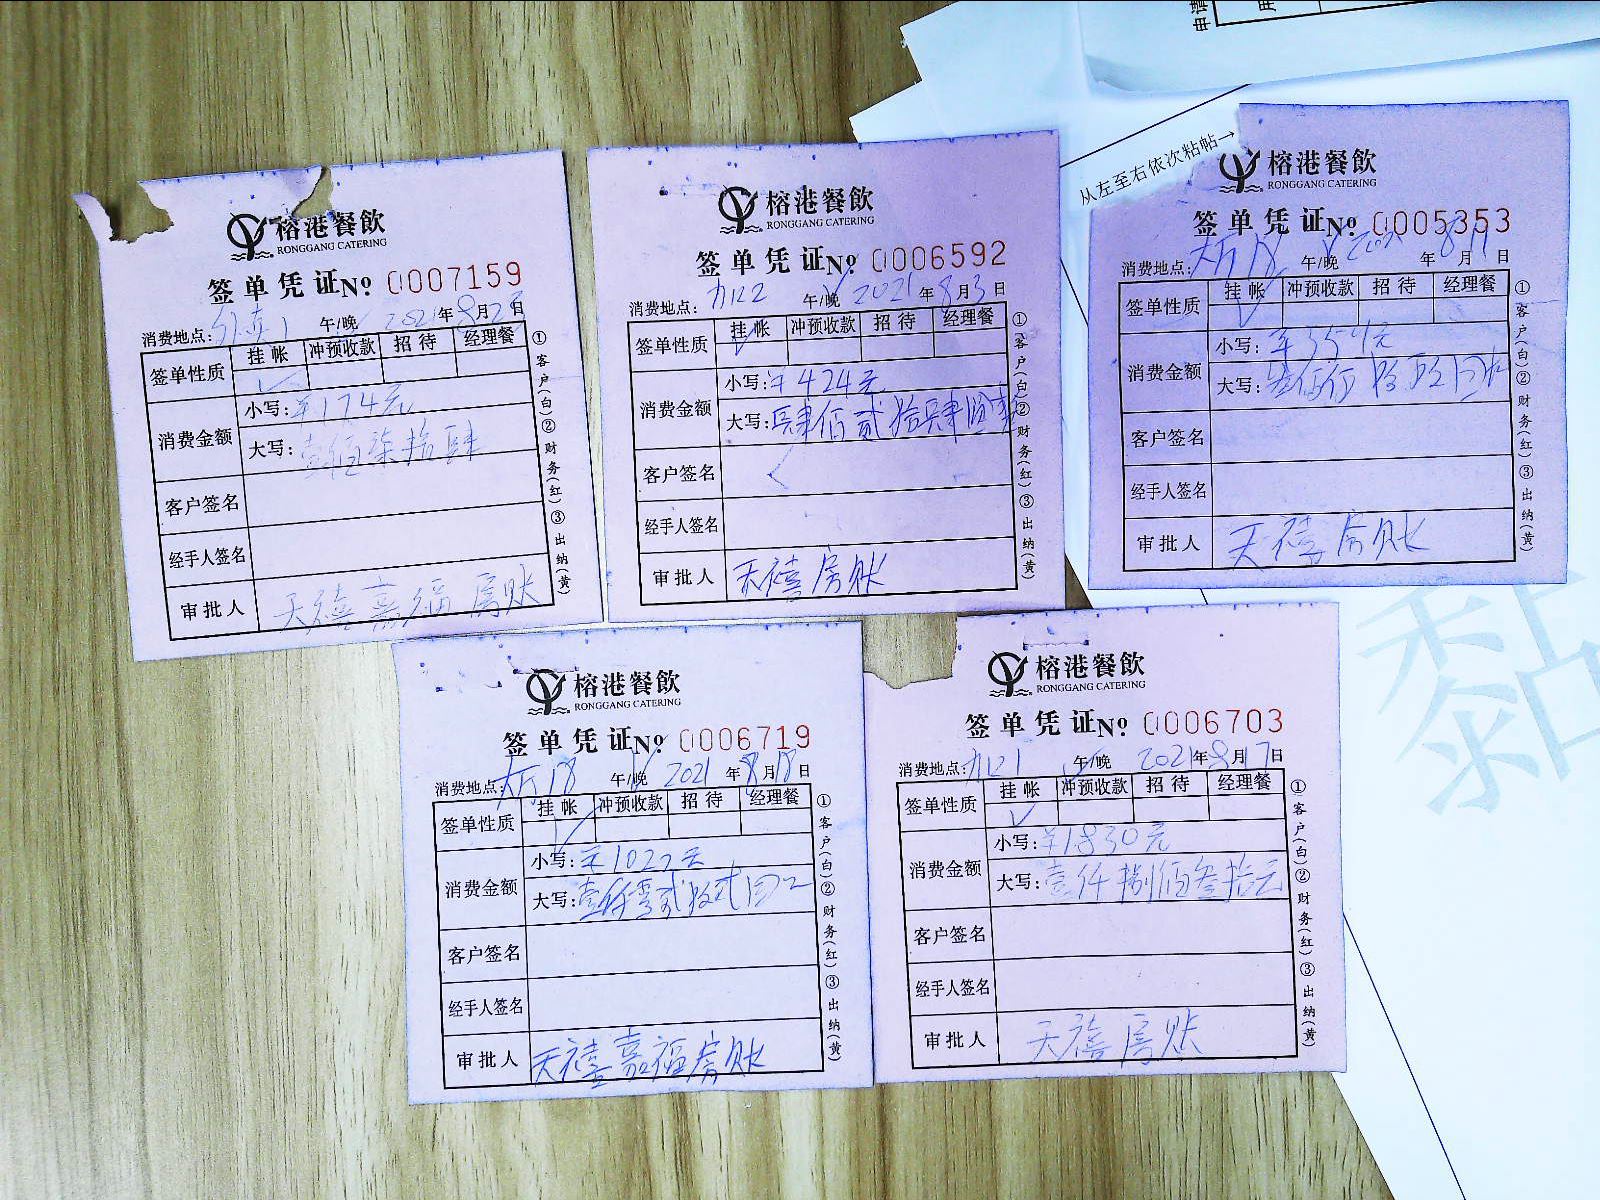 申请
用
从左至右依次粘帖→
榕港餐飲
RONGGANG CATERING
签单凭证№ 0007159
消费地点: 外卖1 午/晚 2021年8月2日
签单性质 挂帐 冲预收款 招待 经理餐
消费金额 小写: ¥174元
大写: 壹佰柒拾肆
客户签名
经手人签名
审批人 天禧嘉福房账
①客户(白)②财务(红)③出纳(黄)
榕港餐飲
RONGGANG CATERING
签单凭证№ 0006592
消费地点: 午/晚 2021年8月3日
签单性质 挂帐 冲预收款 招待 经理餐
消费金额 小写: ¥424元
大写: 肆佰贰拾肆
客户签名
经手人签名
审批人 天禧房账
①客户(白)②财务(红)③出纳(黄)
榕港餐飲
RONGGANG CATERING
签单凭证№ 0005353
消费地点: 大厅18 午/晚 2021年8月日
签单性质 挂帐 冲预收款 招待 经理餐
消费金额 小写: ¥元
大写:
客户签名
经手人签名
审批人 天禧房账
①客户(白)②财务(红)③出纳(黄)
榕港餐飲
RONGGANG CATERING
签单凭证№ 0006719
消费地点: 大厅18 午/晚 2021年8月18日
签单性质 挂帐 冲预收款 招待 经理餐
消费金额 小写: ¥元
大写: 壹仟零贰拾
客户签名
经手人签名
审批人 天禧嘉福房账
①客户(白)②财务(红)③出纳(黄)
榕港餐飲
RONGGANG CATERING
签单凭证№ 0006703
消费地点: 午/晚 2021年8月17日
签单性质 挂帐 冲预收款 招待 经理餐
消费金额 小写: ¥1830元
大写: 壹仟捌佰叁拾元
客户签名
经手人签名
审批人 天禧房账
①客户(白)②财务(红)③出纳(黄)
黏